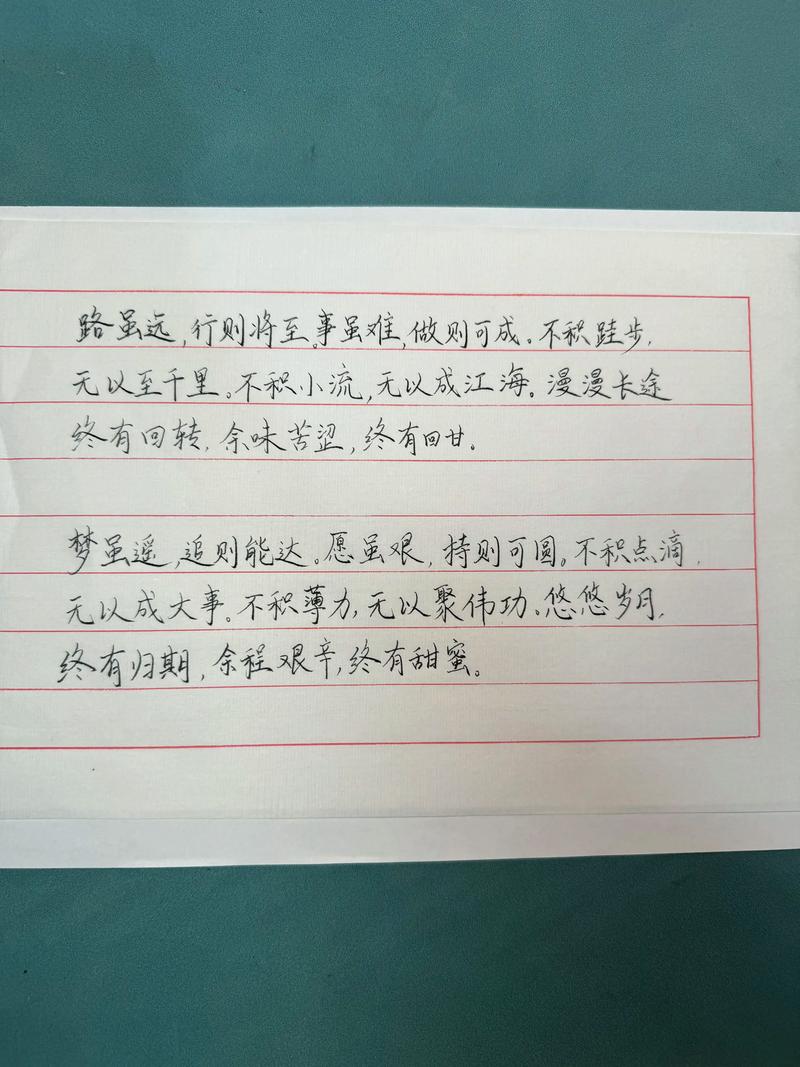 路虽远,行则将至。事虽难,做则可成。不积跬步,
无以至千里。不积小流,无以成江海。漫漫长途
终有回转,余味苦涩,终有回甘。
梦虽遥,追则能达。愿虽艰,持则可圆。不积点滴,
无以成大事。不积薄力,无以聚伟功。悠悠岁月,
终有归期,余程艰辛,终有甜蜜。